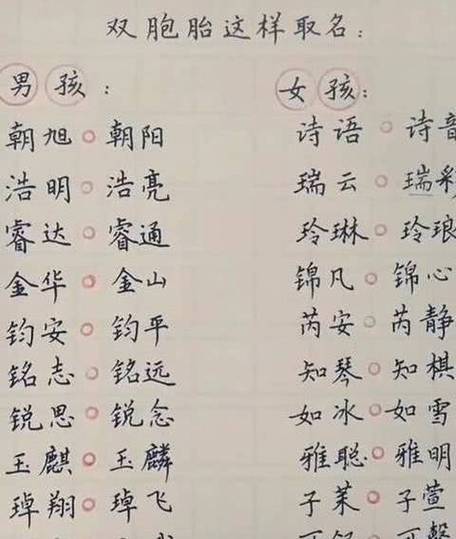 双胞胎这样取名:
男孩: 女孩:
朝旭 朝阳 诗语 诗音
浩明 浩亮 瑞云 瑞彩
睿达 睿通 玲琳 玲琅
金华 金山 锦凡 锦心
钧安 钧平 芮安 芮静
铭志 铭远 知琴 知棋
锐思 锐念 如冰 如雪
玉麒 玉麟 雅聪 雅明
琸翔 琸飞 子茉 子萱